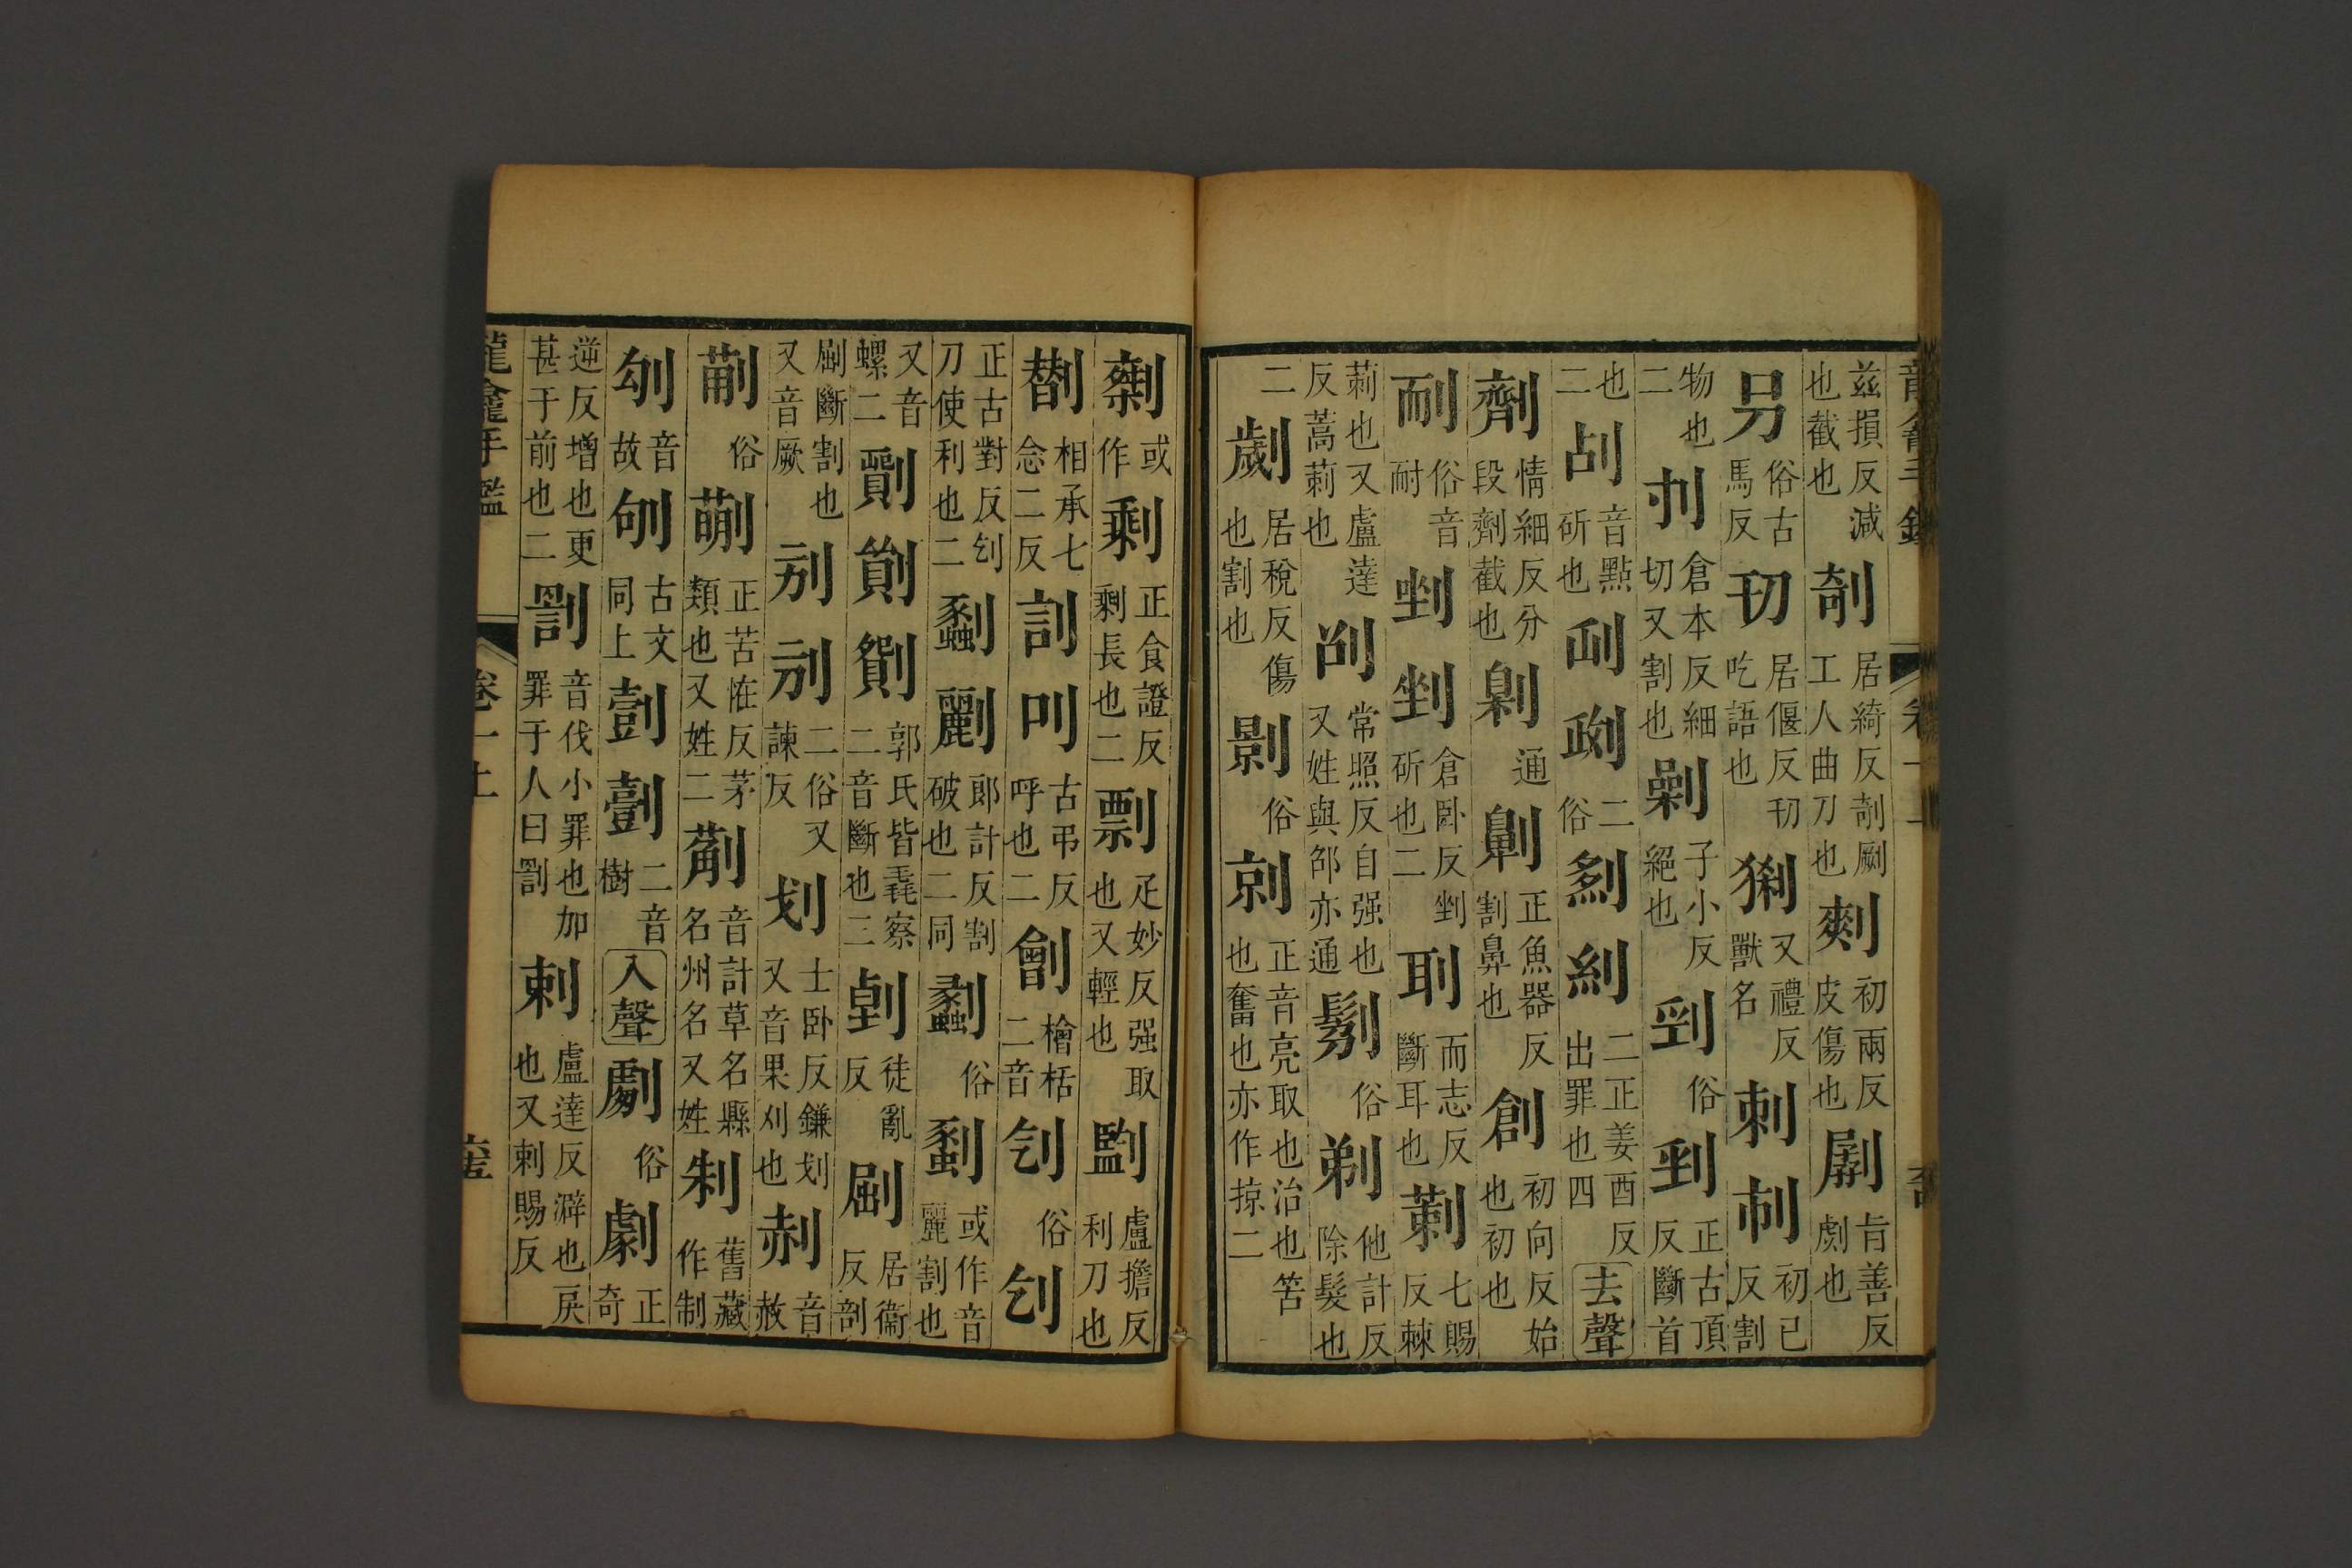 茲損反減也截也剞居綺反剞劂工人曲刀也㓽初兩反皮傷也㔎旨善反劌也
叧俗古馬反㓞居偃反㓞吃語也猁又禮反獸名刺刾初已反割
物也二刌倉本反細切又割也剿子小反絕也㓸俗剄正古頂反斷首
也二㓠音點斫也𠜜𠝎二俗𠞃𠜓二正姜酉反出罪也四去聲
劑情細反分段劑截也剠通劓正魚器反割鼻也創初向反始也初也
耐俗音耐剉剉倉卧反剉斫也二刵而志反斷耳也莿七賜反棘
莿也又盧達反蒿莿也劭常照反自强也又姓與邵亦通鬀俗剃他計反除髮也
二劌居稅反傷也割也影俗剠正音亮取也治也笞也奮也亦作掠二
龍龕手鑑 卷一上
㓼或作剩正食證反剩長也二剽疋妙反强取也又輕也㓯盧擔反利刀也
朁相承七念二反訓叫古弔反呼也二劊檜栝二音刉俗刉
正古對反刉刀使利也二蠫劙郎計反割破也二同蠫俗蠫或作音麗割也
又音螺二㔀𠟔𠟎郭氏皆毳察二音斷也三㓬徒亂反㓷居衞反剖
㓷斷割也又音厥別別二俗又諫反划士卧反鎌划又音果刈也㓤音赦
蒯俗蒯正苦恠反茅類也又姓二薊音計草名縣名州名又姓制舊藏作制
刣音故刣古文同上尌尌二音樹入聲劇俗劇正奇
逆反增也更甚于前也二罰音伐小罪也加罪于人曰罰剌盧達反澼也戾也又剌賜反
龍龕手鑑 卷一上